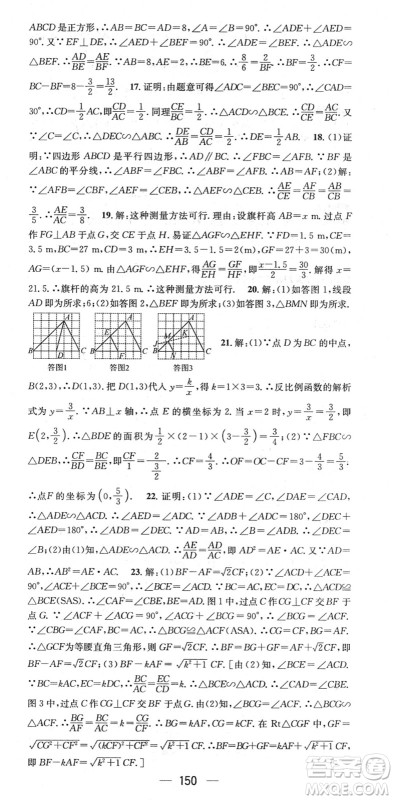 ABCD 是正方形,∴AB=BC=AD=8,∠A=∠B=90°.∴∠ADE+∠AED=
90°.又∵EF⊥DE,∴∠AED+∠BEF=90°.∴∠ADE=∠BEF.∴△ADE
∽△BEF.∴AD/BE=AE/BF.∵AE=2,∴BE=6.∴8/6=2/BF.∴BF=3/2.∴CF=
BC-BF=8-3/2=13/2. 17.证明:由题意可得∠ADC=∠BEC=90°,∠CAD
=30°,∴CD=1/2AC,即CD/AC=1/2.同理CE/BC=1/2.∴CD/AC=CE/BC,即CD/CE=AC/BC.又
∵∠C=∠C,∴△DEC∽△ABC.∴DE/AB=CD/AC=1/2.∴DE=1/2AB. 18.(1)证
明:∵四边形 ABCD 是平行四边形,∴AD∥BC.∴∠AFB=∠CBF.∵BF 是
∠ABC 的平分线,∴∠ABF=∠CBF.∴∠AFB=∠ABF.∴AB=AF;(2)解:
∵∠AEF=∠CEB,∠AFB=∠CBF,∴△AEF∽△CEB.∴AE/CE=AF/CB=AB/CB=
3/5.∴AE/AC=3/8. 19.解:这种测量方法可行.理由:设旗杆高 AB=x m.过点 F
作 FG⊥AB 于点 G,交 CE 于点 H.易证△AGF∽△EHF.∵FD=1.5 m,
∴EH=3.5-1.5=2(m),GF=BD=27+3=30(m),HF=DC=3 m.
AG=(x-1.5)m.由△AGF∽△EHF,得AG/EH=GF/HF,即x-1.5/2=30/3.解得 x=
21.5.∴旗杆的高为 21.5 m.∴这种测量方法可行. 20.解:(1)如答图1,线段
AD 即为所求;6;(2)如答图2,△BEF 即为所求;(3)如答图3,△BMN 即为所求.
21.解:(1)∵点 D 为 BC 的中点,
答图1 答图2 答图3
B(2,3),∴D(1,3).把 D(1,3)代入 y=k/x,得 k=1×3=3.∴反比例函数的解析
式为 y=3/x.∵AB⊥x 轴,∴点 E 的横坐标为 2.当 x=2时,y=3/x=3/2,即
E(2,3/2).∴△BDE 的面积为1/2×(2-1)×(3-3/2)=3/4;(2)∵△FBC∽
△DEB,∴CF/BD=BC/BE,即CF/2-1=2/3-3/2.∴CF=4/3.∴OF=OC-CF=3-4/3=5/3.
∴点 F 的坐标为(0,5/3). 22.证明:(1)∵∠AED=∠C,∠DAE=∠CAD,
∴△ADE∽△ACD.∴∠AED=∠ADC.∵∠ADC+∠ADB=180°,∠AED+
∠DEC=180°,∴∠ADB=∠DEC.又∵AB=AC,∴∠B=∠C.∴△ABD
∽△DCE;(2)∵△ADE∽△ACD,∴AE/AD=AD/AC.∴AD²=AE·AC.又∵AB=
AC,∴AD²=AE·AB. 23.解:(1)BF-AF=√2CF;(2)∵∠ACB=∠DCE=
90°,∴∠BCE=∠ACD.又∵BC=AC,EC=DC,∴△BCE≌
△ACD(SAS).∴∠CAF=∠CBE,BE=AD.图1中,过点 C 作 CG⊥CF 交 BF
于点 G.∵∠FCG=90°,∠ACB=90°,∴∠ACF=∠BCG.又∵∠CAF
=∠CBG,BC=AC,∴△BCG≌△ACF(ASA).∴CG=CF,BG=AF.
∴△GCF 为等腰直角三角形.∴GF=√2CF.∵BF-BG=GF,∴BF-AF=√2CF,
即 BF-AF=√2CF;(3)BF-kAF=√k²+1CF.[由(2)知,∠BCE=∠ACD.
∵BC=kAC,EC=kDC,∴BC/AC=EC/CD=k.∴△BCE∽△ACD.∴∠CBE=∠CAF.
图3中,过点 C 作 CG⊥CF 交 BF 于点 G.同理可得∠BCG=∠ACF.∴△BGC
∽△AFC.∴BG/AF=BC/AC=GC/CF=k.∴BG=kAF,GC=kCF.∵GF=
√CG²+CF²=√(kCF)²+CF²=√k²+1CF.∴BF-BG=GF=√k²+1CF,
即 BF-kAF=√k²+1CF.]
150